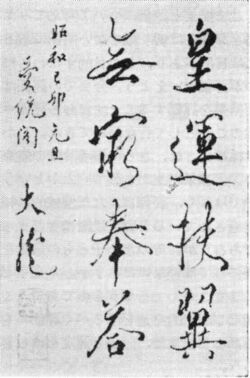 皇運扶翼
無窮奉答
昭和己卯元旦
統閣
大